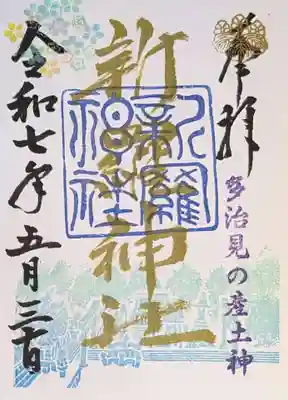 奉拝
多治見の産土神
新羅神社
新羅神社
令和七年五月三十日